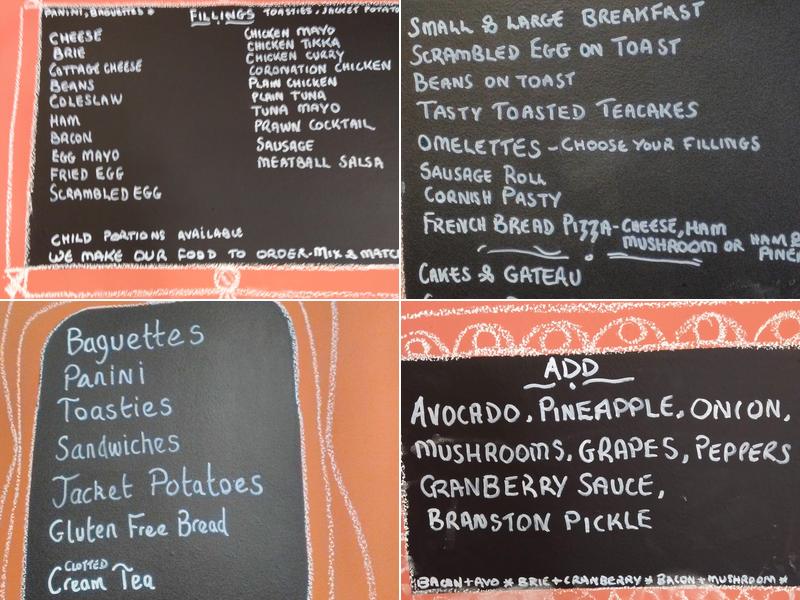 PANINI, BAGUETTES * FILLINGS TOASTIES, JACKET POTATO
CHEESE
BRIE
COTTAGE CHEESE
BEANS
COLESLAW
HAM
BACON
EGG MAYO
FRIED EGG
SCRAMBLED EGG
CHICKEN MAYO
CHICKEN TIKKA
CHICKEN CURRY
CORONATION CHICKEN
PLAIN CHICKEN
PLAIN TUNA
TUNA MAYO
PRAWN COCKTAIL
SAUSAGE
MEATBALL SALSA
CHILD PORTIONS AVAILABLE
WE MAKE OUR FOOD TO ORDER-MIX & MATC
SMALL & LARGE BREAKFAST
SCRAMBLED EGG ON TOAST
BEANS ON TOAST
TASTY TOASTED TEACAKES
OMELETTES - CHOOSE YOUR FILLINGS
SAUSAGE ROLL
CORNISH PASTY
FRENCH BREAD PIZZA - CHEESE, HAM
MUSHROOM OR HAM &
PINE
CAKES & GATEAU
Baguettes
Panini
Toasties
Sandwiches
Jacket Potatoes
Gluten Free Bread
CLOTTED
Cream Tea
ADD
AVOCADO, PINEAPPLE, ONION,
MUSHROOMS, GRAPES, PEPPERS
CRANBERRY SAUCE,
BRANSTON PICKLE
BACON+AVO * BRIE+CRANBERRY * BACON+MUSHROOM *